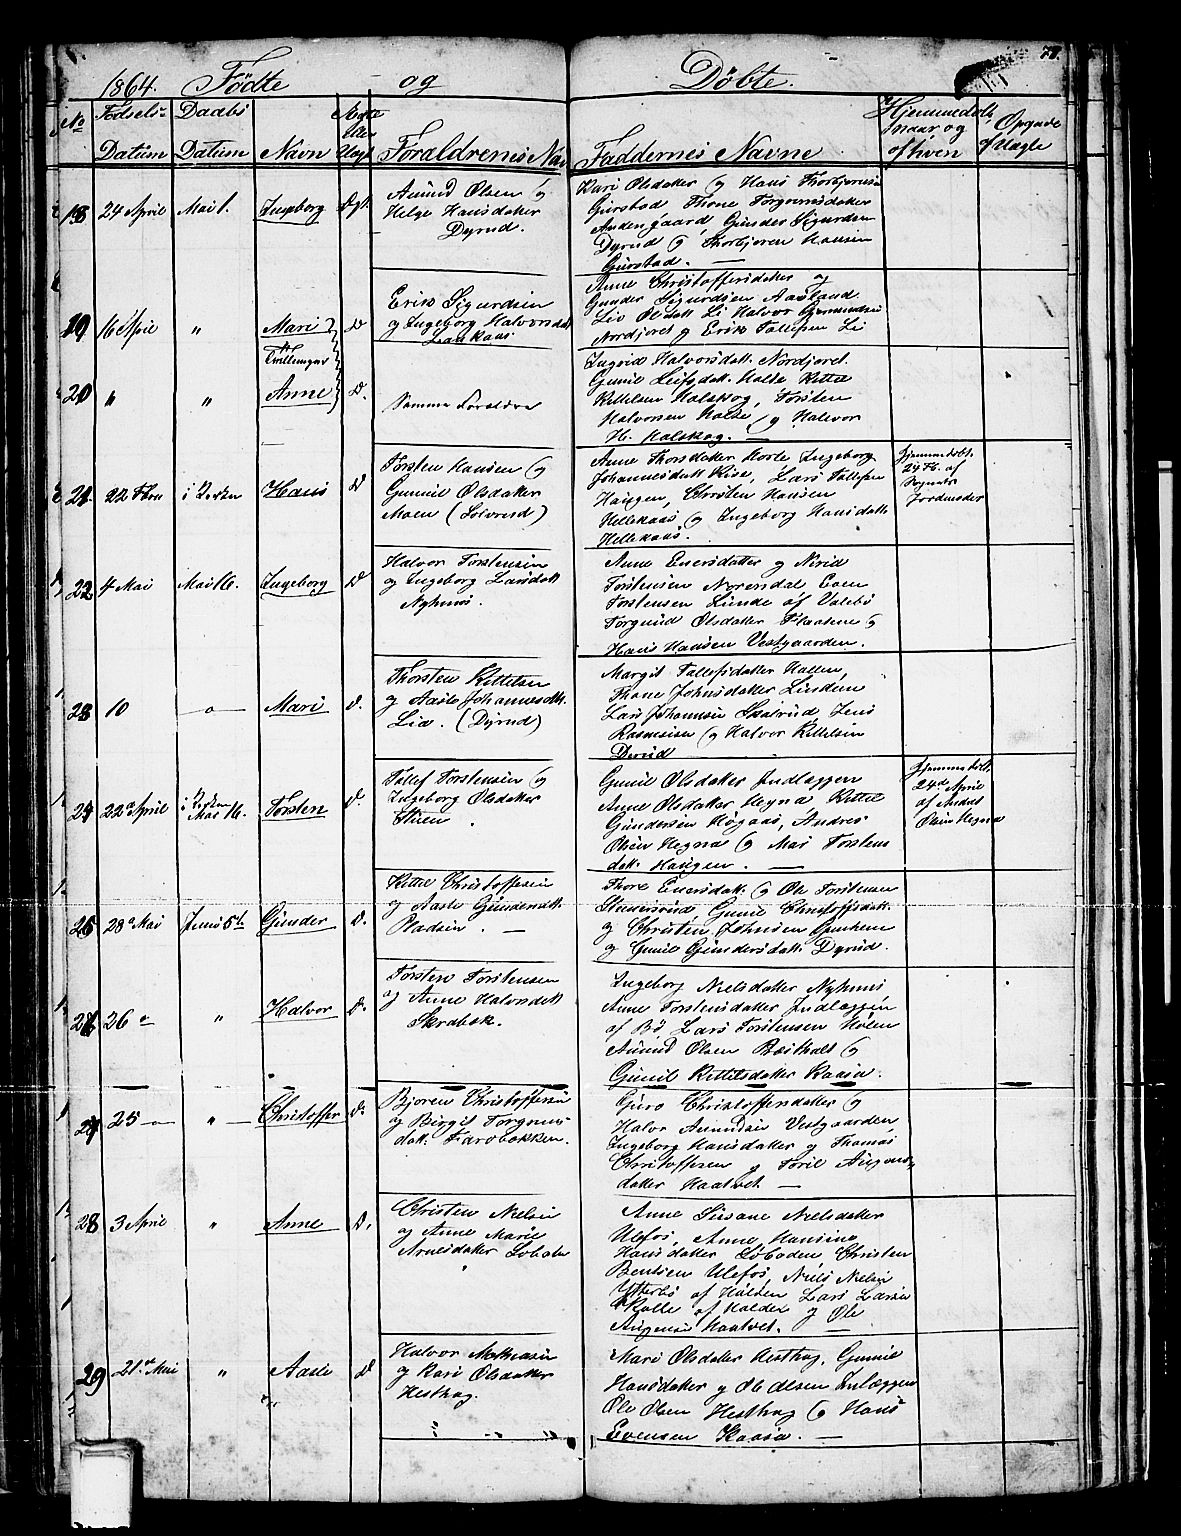 1864. Fødte og Døbte.
No Fødsels- Datum Daabs Datum Navn Ægte eller Uægt Foraldrenes Nav Faddernes Navne Hjemmedøbt naar og af hven Opgave af Uagte
18 24 April Mai 1. Ingeborg Ægt. Amund Olsen og
Helge Hansdatter
Dyrud.
Kari Olsdatter og Hans Thorbjørnsen
Gurstad Thone Torgrimsdatter
Gunder Sigurdsen
Dyrud og Thorbjørn Hansen
Gurstad. —
19 16 April " Mari Æ Erik Sigurdsen
og Ingeborg Halvorsdatt
Laaskaas
Anne Christoffersdatter og
Gunder Sigurdsen Aasland
Liv Olsdatt Li Halvor Gjermundsen
Nordjoret og Erik Tallefsen Li
Tvillinger
20 " " Anne Æ. Samme Foraldre
Ingrid Halvorsdatt. Nordjoret.
Gunil Leifsdatt. Holte Kittil
Kittilsen Halskog, Torsten
Halvorsen Holte og Halvor
H. Halskog. —
21 22 Fbru i Kirken Hans Æ Torsten Hansen og
Gunnil Olsdatter
Moen (Solverud)
Anne Thorsdatter Horte Ingeborg
Johannesdatt Kise, Lars Tallefsen
Haugen, Christen Hansen
Hellekaas og Ingeborg Hansdatt
Hellekaas.
Hjemmedøbt.
24 Fb. af
Sognets
Jordmoder
22 4 Mai Mai 16. Ingeborg Æ Halvor Torstensen
og Ingeborg Larsdatt
Nyhuus.
Anne Enersdatter og
Torstensen Norendal Even
Torstensen Lunde af Valebø
Torgunid Olsdatter
Hans Hansen Vestgaarden.
23 10 — " — Mari Æ. Thorsten Kittelsen
og Aasle Johannesdatt.
Lia. (Dyrud)
Margit Tallefsdatter Hallen,
Thone Johnsdatter Linden
Lars Johannesen Skotrud, Jens
Rasmussen og Halvor Kittelsen
Dyrud
24 22 April i Kirken Mai 16. Torsten Æ. Tallef Torstensen og
Ingeborg Olsdatter
Stuen.
Gunil Olsdatter Indlaggen
Anne Olsdatter Hegna Kittil
Gundersen Høgaas, Andres
Olsen Hegna og Mari Torstens
datt. Haugen. —
Hjemmedøbt.
24de April
af Andres
Olsen Hegna
25 28 Mai Juni 5te Gunder Æ. Kittil Christoffersen
og Aasle Gundersdatt.
Pladsen. —
Thore Enersdatt. og Ole Torstensen
Gunil Christoffersdatt.
og Christen Johnsen
og Gunil Gundersdatt. Dyrud.
26 26 " Halvor Æ. Torsten Torstensen
og Anne Halvorsdatt
Skrabek.
Ingeborg Nielsdatter Nyhuus
Anne Torstensdatter Indlæggen
af Bø Lars Torstensen Holen
Amund Olsen og
Gunil Kittilsdatter Kaasa.
27 25 — " — Christoffer Æ. Bjoren Christoffersen
og Birgit Torgrims
datt. Farobakken.
Guro Christoffersdatter og
Halvor Amundsen Vestgaarden
Ingeborg Hansdatter og Thomas
Christoffersen og Toril Augons-
datter Haatvet. —
28 3 April " Anne Æ. Christen Nielsen
og Anne Marie
Arnesdatter
Anne Susane Nielsdatter
Ulefos, Anne Hansine
Hansdatter Christen
Bentsen Ulefos, Niels Nielsen
Ytterbø af Holden Lars Larsen
Kolle af Holden og Ole
Augensen Haatvet. —
29 21de Mai " Aasle Æ Halvor Mathiasen
og Kari Olsdatter
Hesthag.
Mari Olsdatter Hesthag. Gunnil
Hansdatter og Ole Olsen Inlæggen
Ole Olsen Hesthag og Hans
Evensen Kaasa. —